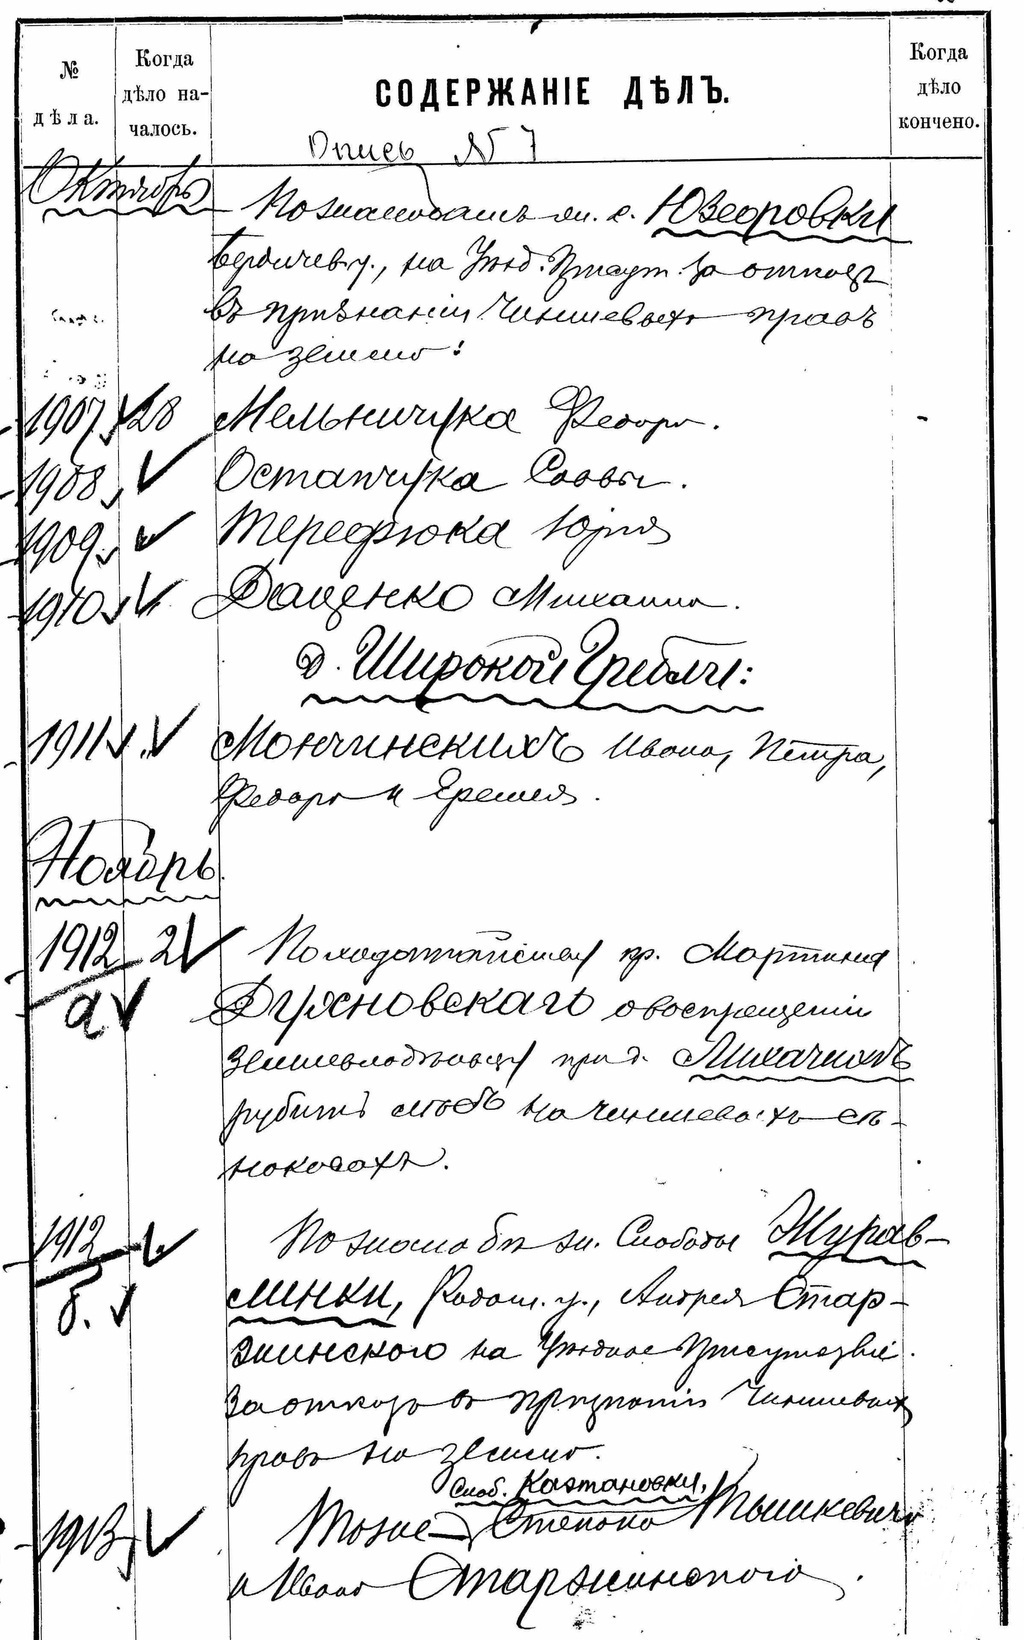 № дѣла.
Когда дѣло началось.
СОДЕРЖАНІЕ ДѢЛЪ.
Когда дѣло кончено.
Опись № 7
Октябрь
По жалобамъ жи. с. Юзефовки
Бердичев. у., на Уѣзд. Присут. за отказъ
въ признаніи чиншевыхъ правъ
на землю:
1907 28 Мельничука Федора.
1908 Остапчука Саввы.
1909 Терефюка Юрія
1910 Даценко Михаила.
д. Широкой Гребли:
1911 Мончинскихъ Ивана, Петра,
Федора и Еремея.
Ноябрь
1912/а 2 По ходатайству кр. Мартина
Духновскаго о воспрещеніи
землевладѣльцу при д. Лихачихъ
рубить лѣсъ на чиншевыхъ сѣ-
нокосахъ.
1912/б. По жалобѣ жи. Слободы Журав-
линки, Радом. у., Андрея Стар-
жинского на Уѣздное Присутствіе
за отказъ въ признаніи чиншевыхъ
правъ на землю.
Слоб. Каштановки,
1913 Тоже – Степана Тышкевича
и Ивана Старжинского.